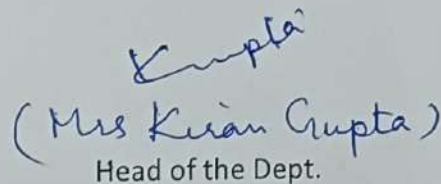 KGupta
(Mrs Kiran Gupta)
Head of the Dept.